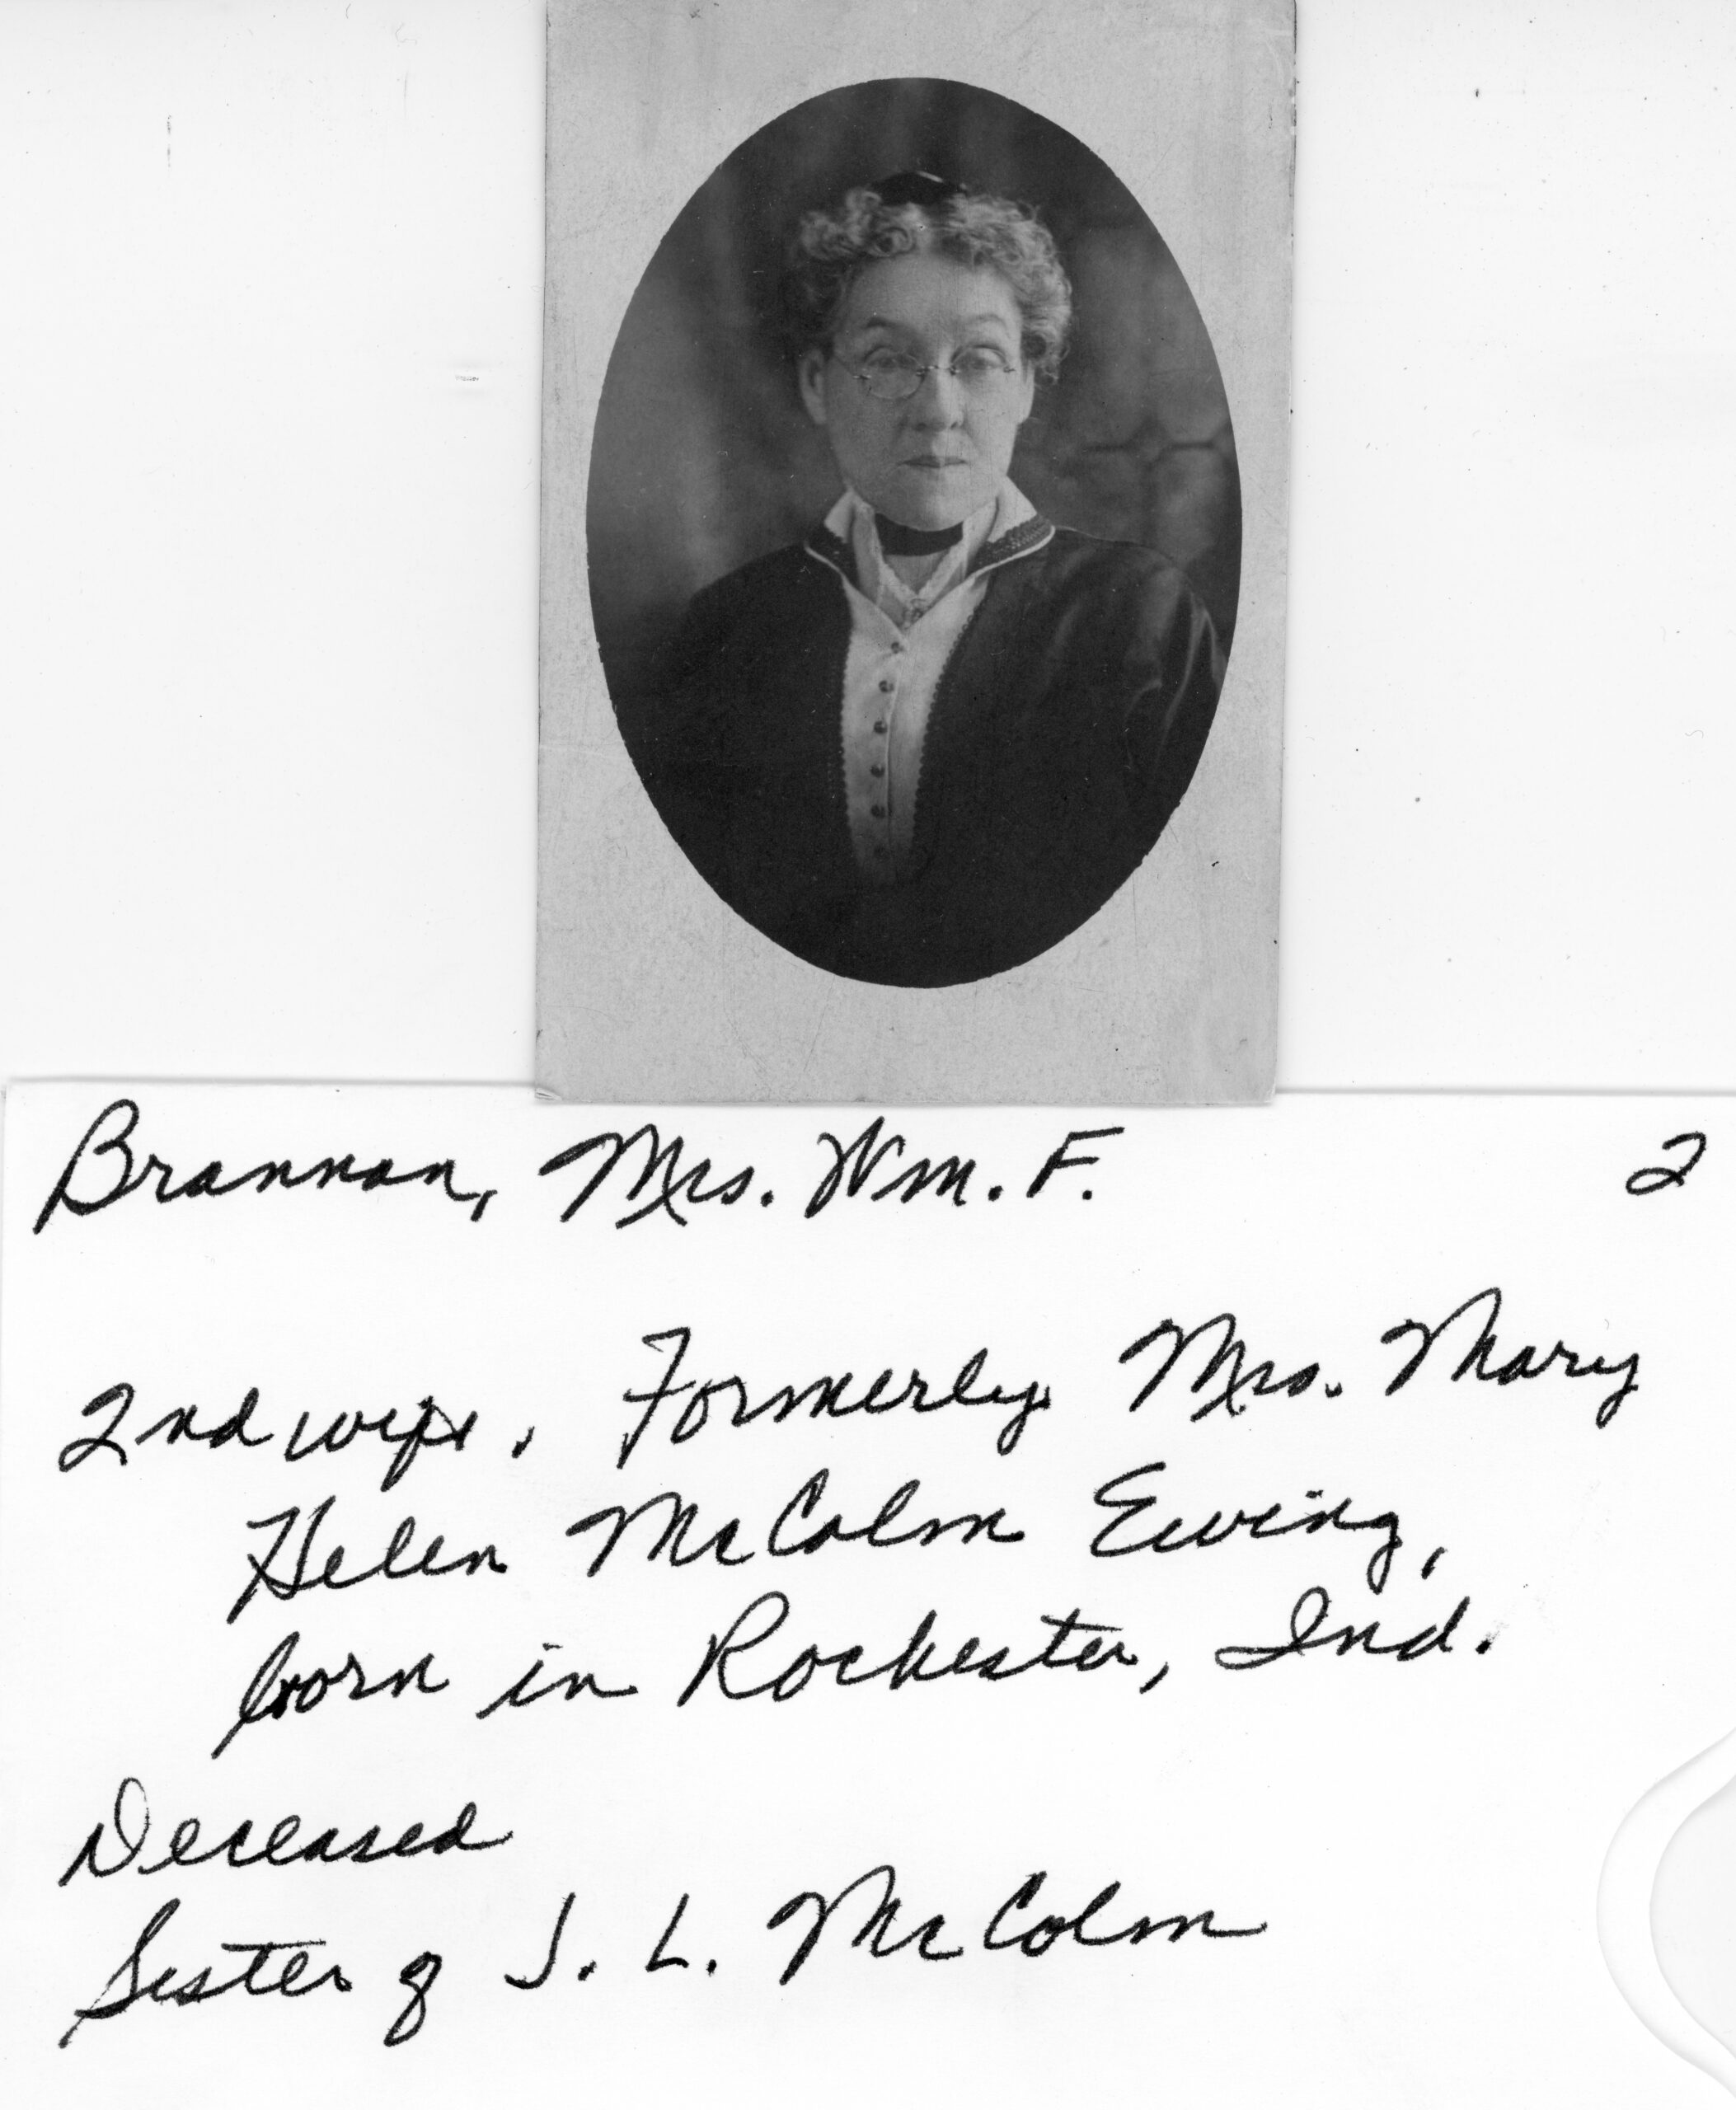 Brannan, Mrs. Wm. F. 2
2nd wife, Formerly Mrs. Mary
Helen McColm Ewing,
born in Rochester, Ind.
Deceased
Sister of J. L. McColm